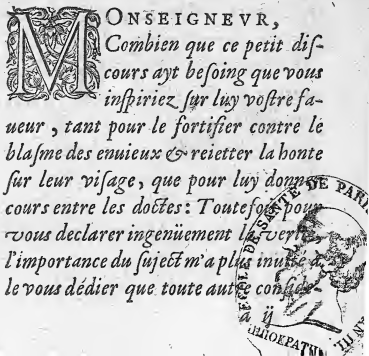 MONSEIGNEVR,
Combien que ce petit diſ-
cours ayt beſoing que vous
inſpiriez ſur luy voſtre fa-
ueur, tant pour le fortifier contre le
blaſme des enuieux & reietter la honte
ſur leur viſage, que pour luy donner
cours entre les doctes: Toutefois pour
vous declarer ingenüement la
l'importance du ſuject m'a plus
le vous dédier que toute autre
ã ij
DE SANTE DE PARI